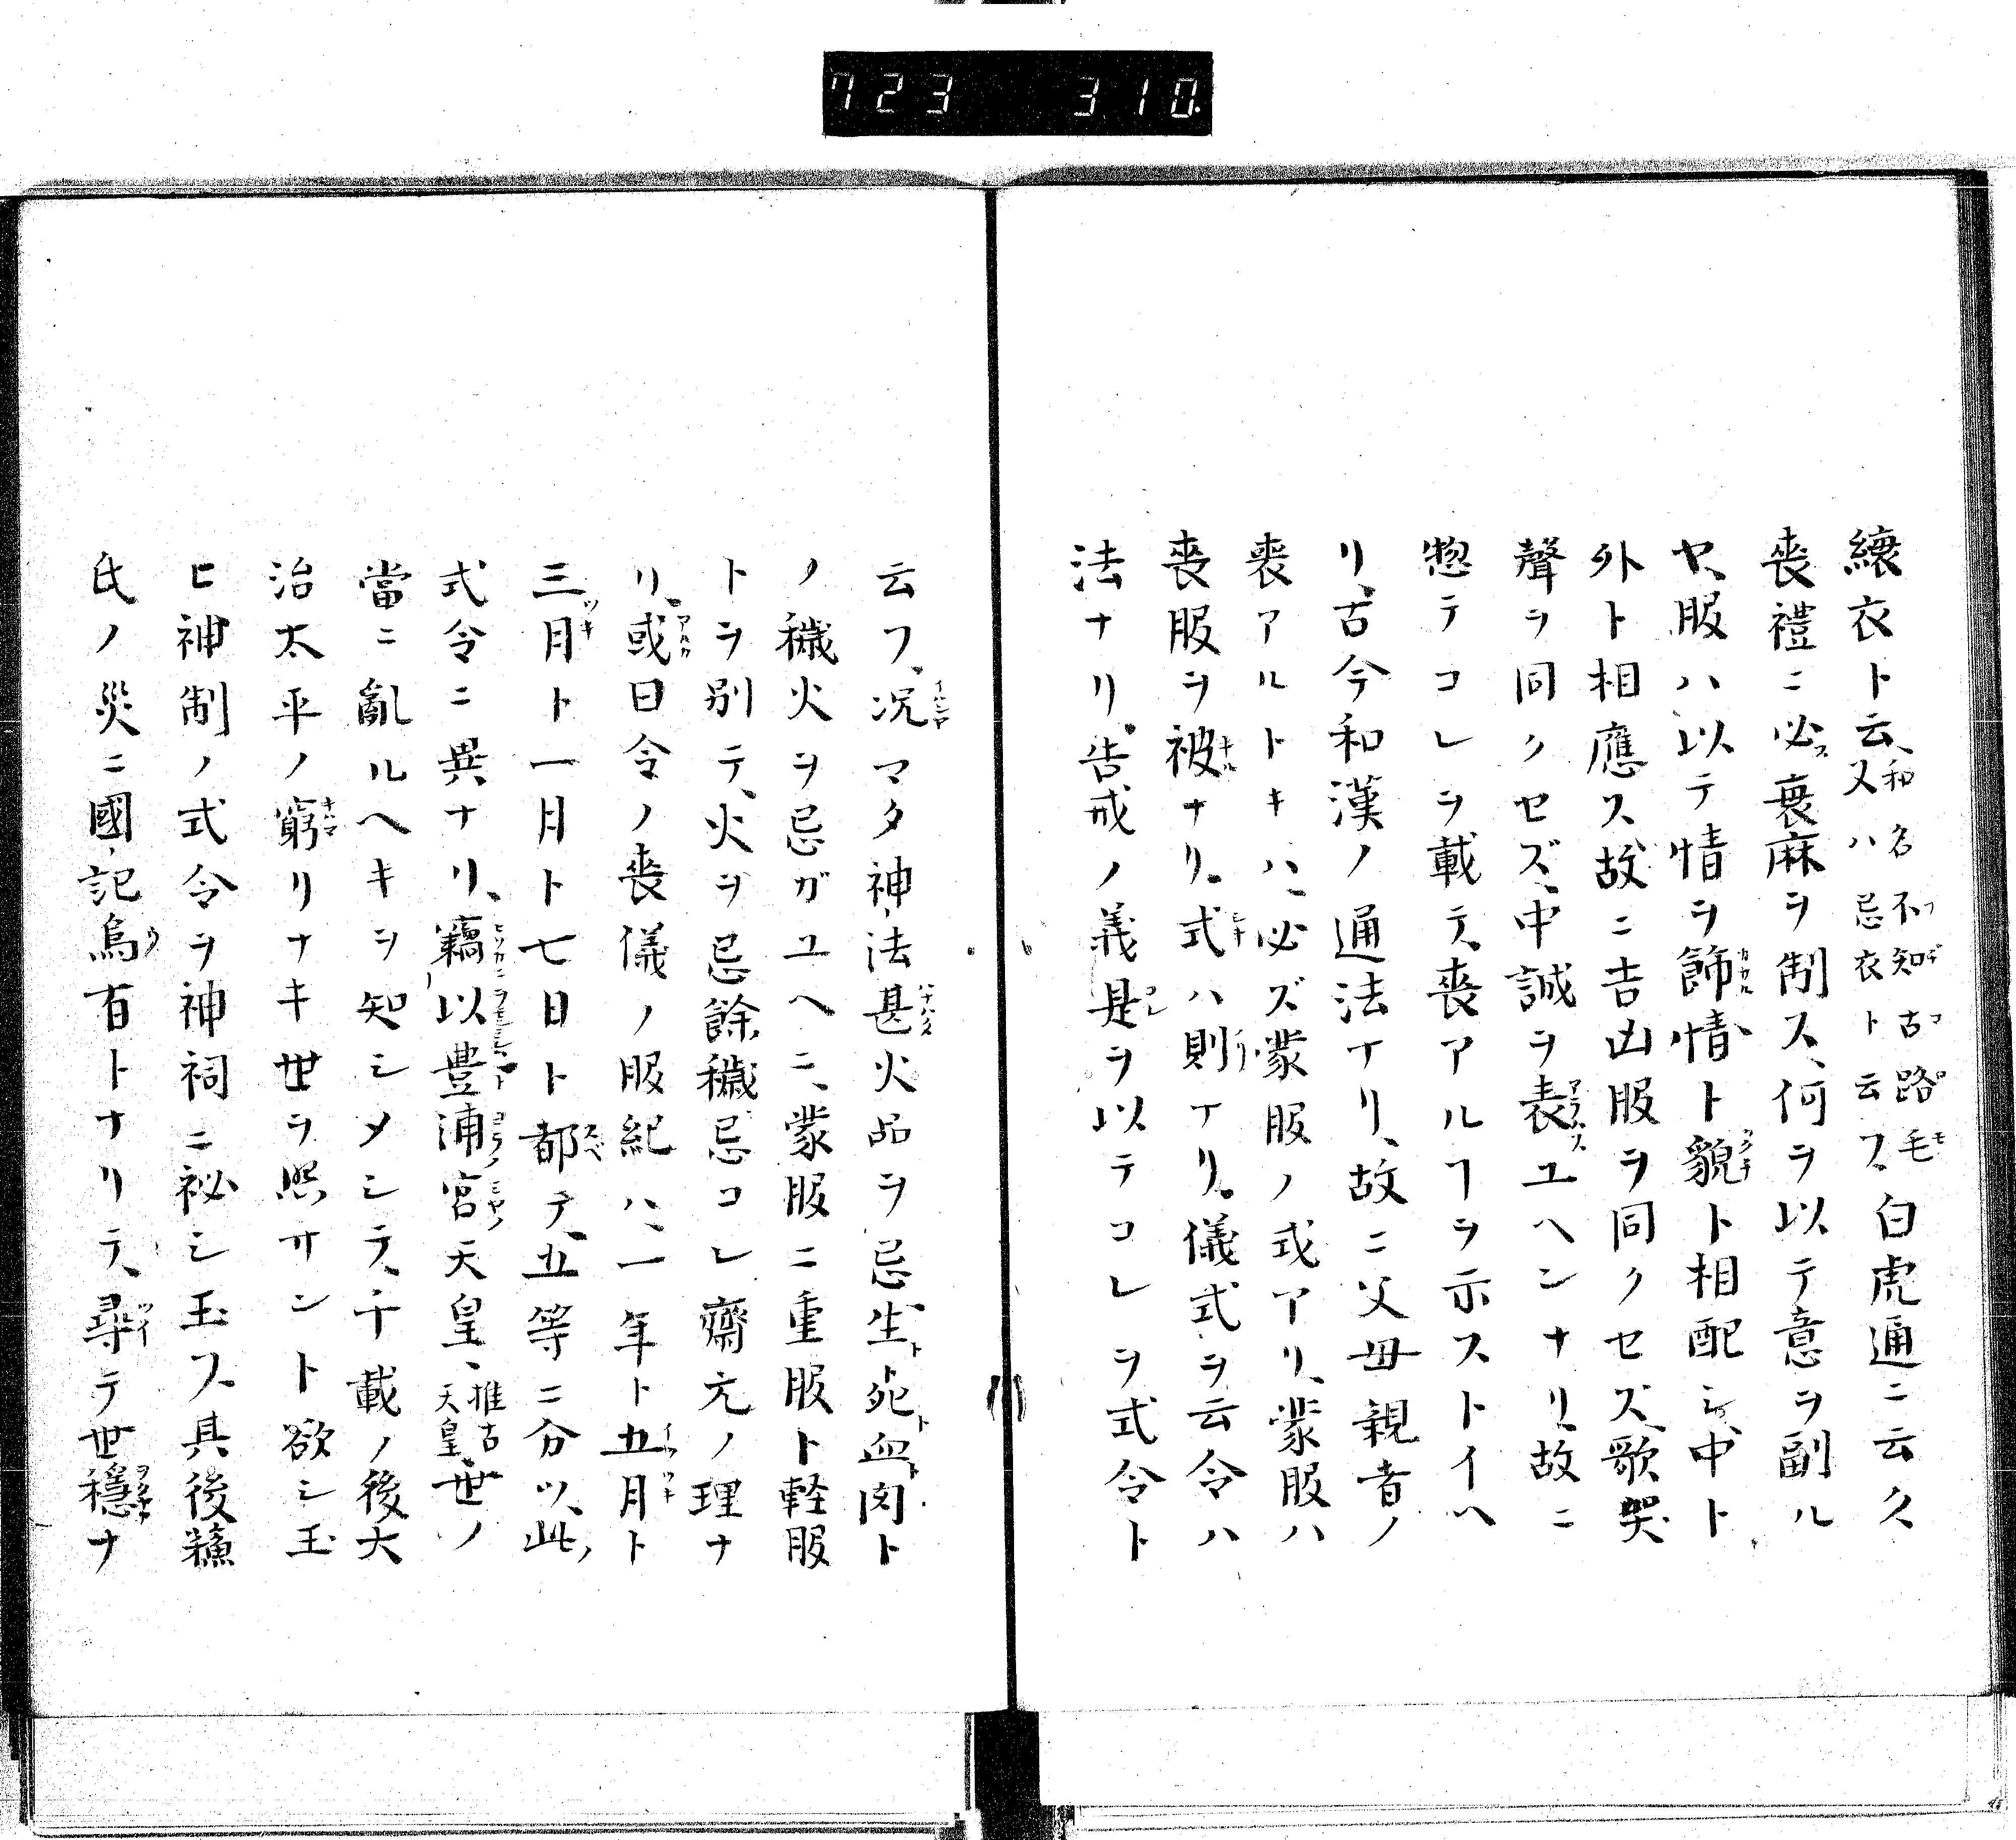 723 310
縗衣ト云、和名不知古路毛又ハ忌衣ト云フ、白虎通ニ云ク
喪禮ニ必ス衰麻ヲ制ス、何ヲ以テ意ヲ副ル
ヤ、服ハ以テ情ヲ餙、情ト貌ト相配シ、中ト
外ト相應ス故ニ吉凶服ヲ同クセズ、歌哭
聲ヲ同クセズ、中誠ヲ表ユヘンナリ、故ニ
惣テコレヲ載テ、喪アルヿヲ示ストイヘ
リ、古今和漢ノ通法ナリ、故ニ父母親者ノ
喪アルトキハ、必ズ蒙服ノ式アリ、蒙服ハ
喪服ヲ被ナリ。式ハ則ナリ。儀式ヲ云令ハ
法ナリ。告戒ノ義是ヲ以テコレヲ式令ト
云フ、况マタ神法甚火品ヲ忌生ト死ト血ト肉ト
ノ穢火ヲ忌ガユヘニ、蒙服ニ重服ト軽服
トヲ別テ、火ヲ忌餘穢忌コレ齋元ノ理ナ
リ、或曰令ノ喪儀ノ服紀ハ、一年ト五月ト
三月ト一月ト七日ト都テ、五等ニ分ツ、此
式令ニ異ナリ、竊以豊浦宮天皇、推古天皇、世ノ
當ニ亂ルヘキヲ知シメシテ、千載ノ後大
治太平ノ窮リナキ世ヲ照サント欲シ玉
ヒ神制ノ式令ヲ神祠ニ祕シ玉フ、其後蘓
氏ノ災ニ國記烏有トナリテ、尋テ世穩ナ